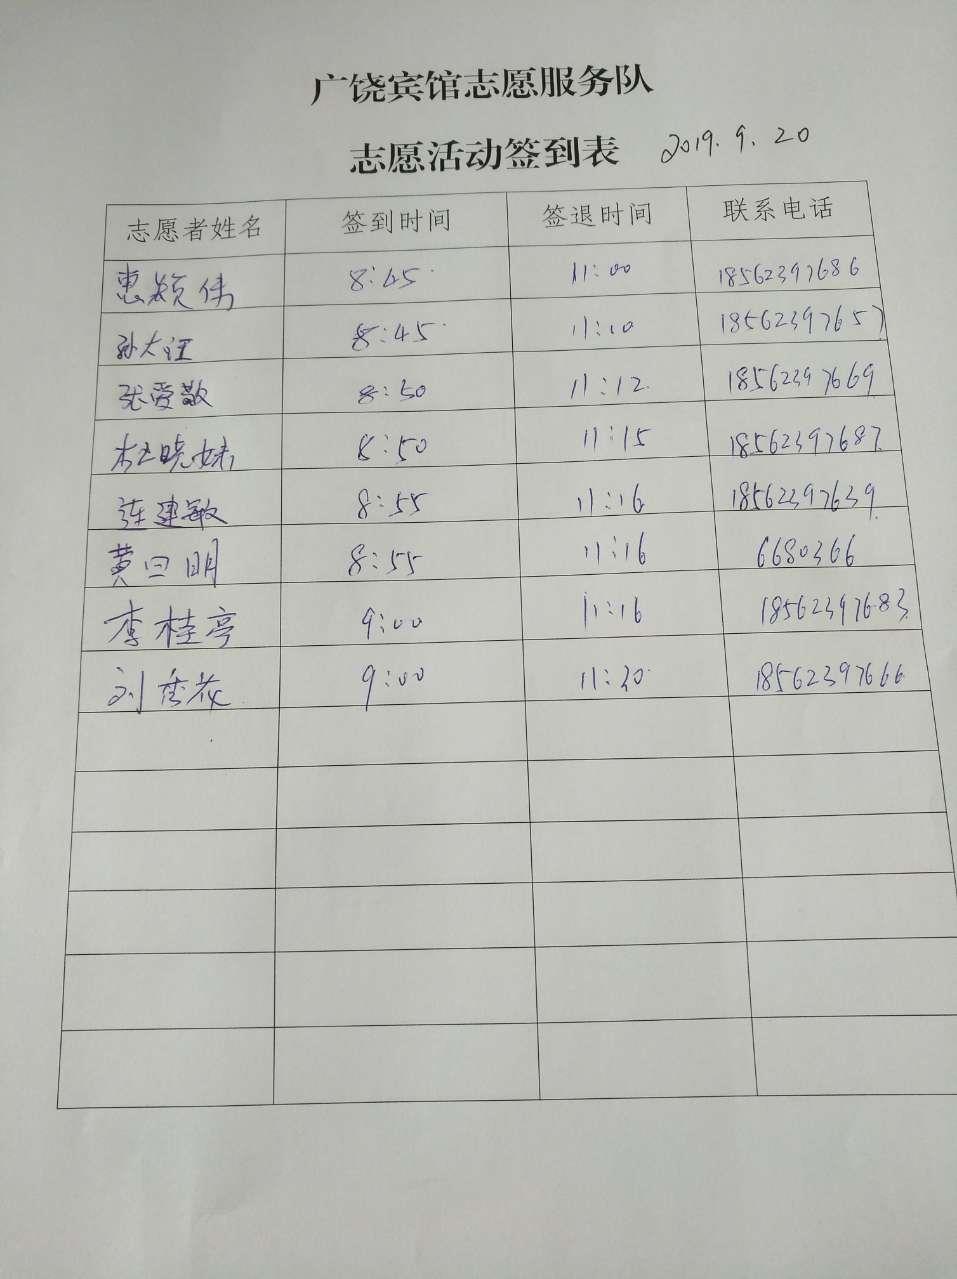 广饶宾馆志愿服务队
志愿活动签到表 2019.9.20
志愿者姓名 签到时间 签退时间 联系电话
惠颖伟 8:45 11:00 18562397686
孙大江 8:45 11:10 18562397657
张爱敬 8:50 11:12 18562397669
杜晓妹 8:50 11:15 18562397687
张建敏 8:55 11:16 18562397639
黄曰明 8:55 11:16 6680366
李桂亭 9:00 11:16 18562397683
刘秀花 9:00 11:20 18562397666